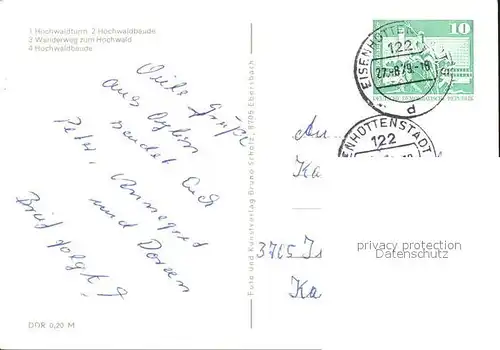 1 Hochwaldturm 2 Hochwaldbaude
3 Wanderweg zum Hochwald
4 Hochwaldbaude
Viele Grüße
aus
sendet Euch
Peter, Annegret
und Doreen
Brief folgt!
DDR 0,20 M
Foto und Kunstverlag Bruno Scholz, 8705 Ebersbach
10
DEUTSCHE DEMOKRATISCHE REPUBLIK
EISENHÜTTENSTADT 1
122
27.-8.79.-18
d
EISENHÜTTENSTADT
122
An
Ka
3705
Ka
privacy protection
Datenschutz